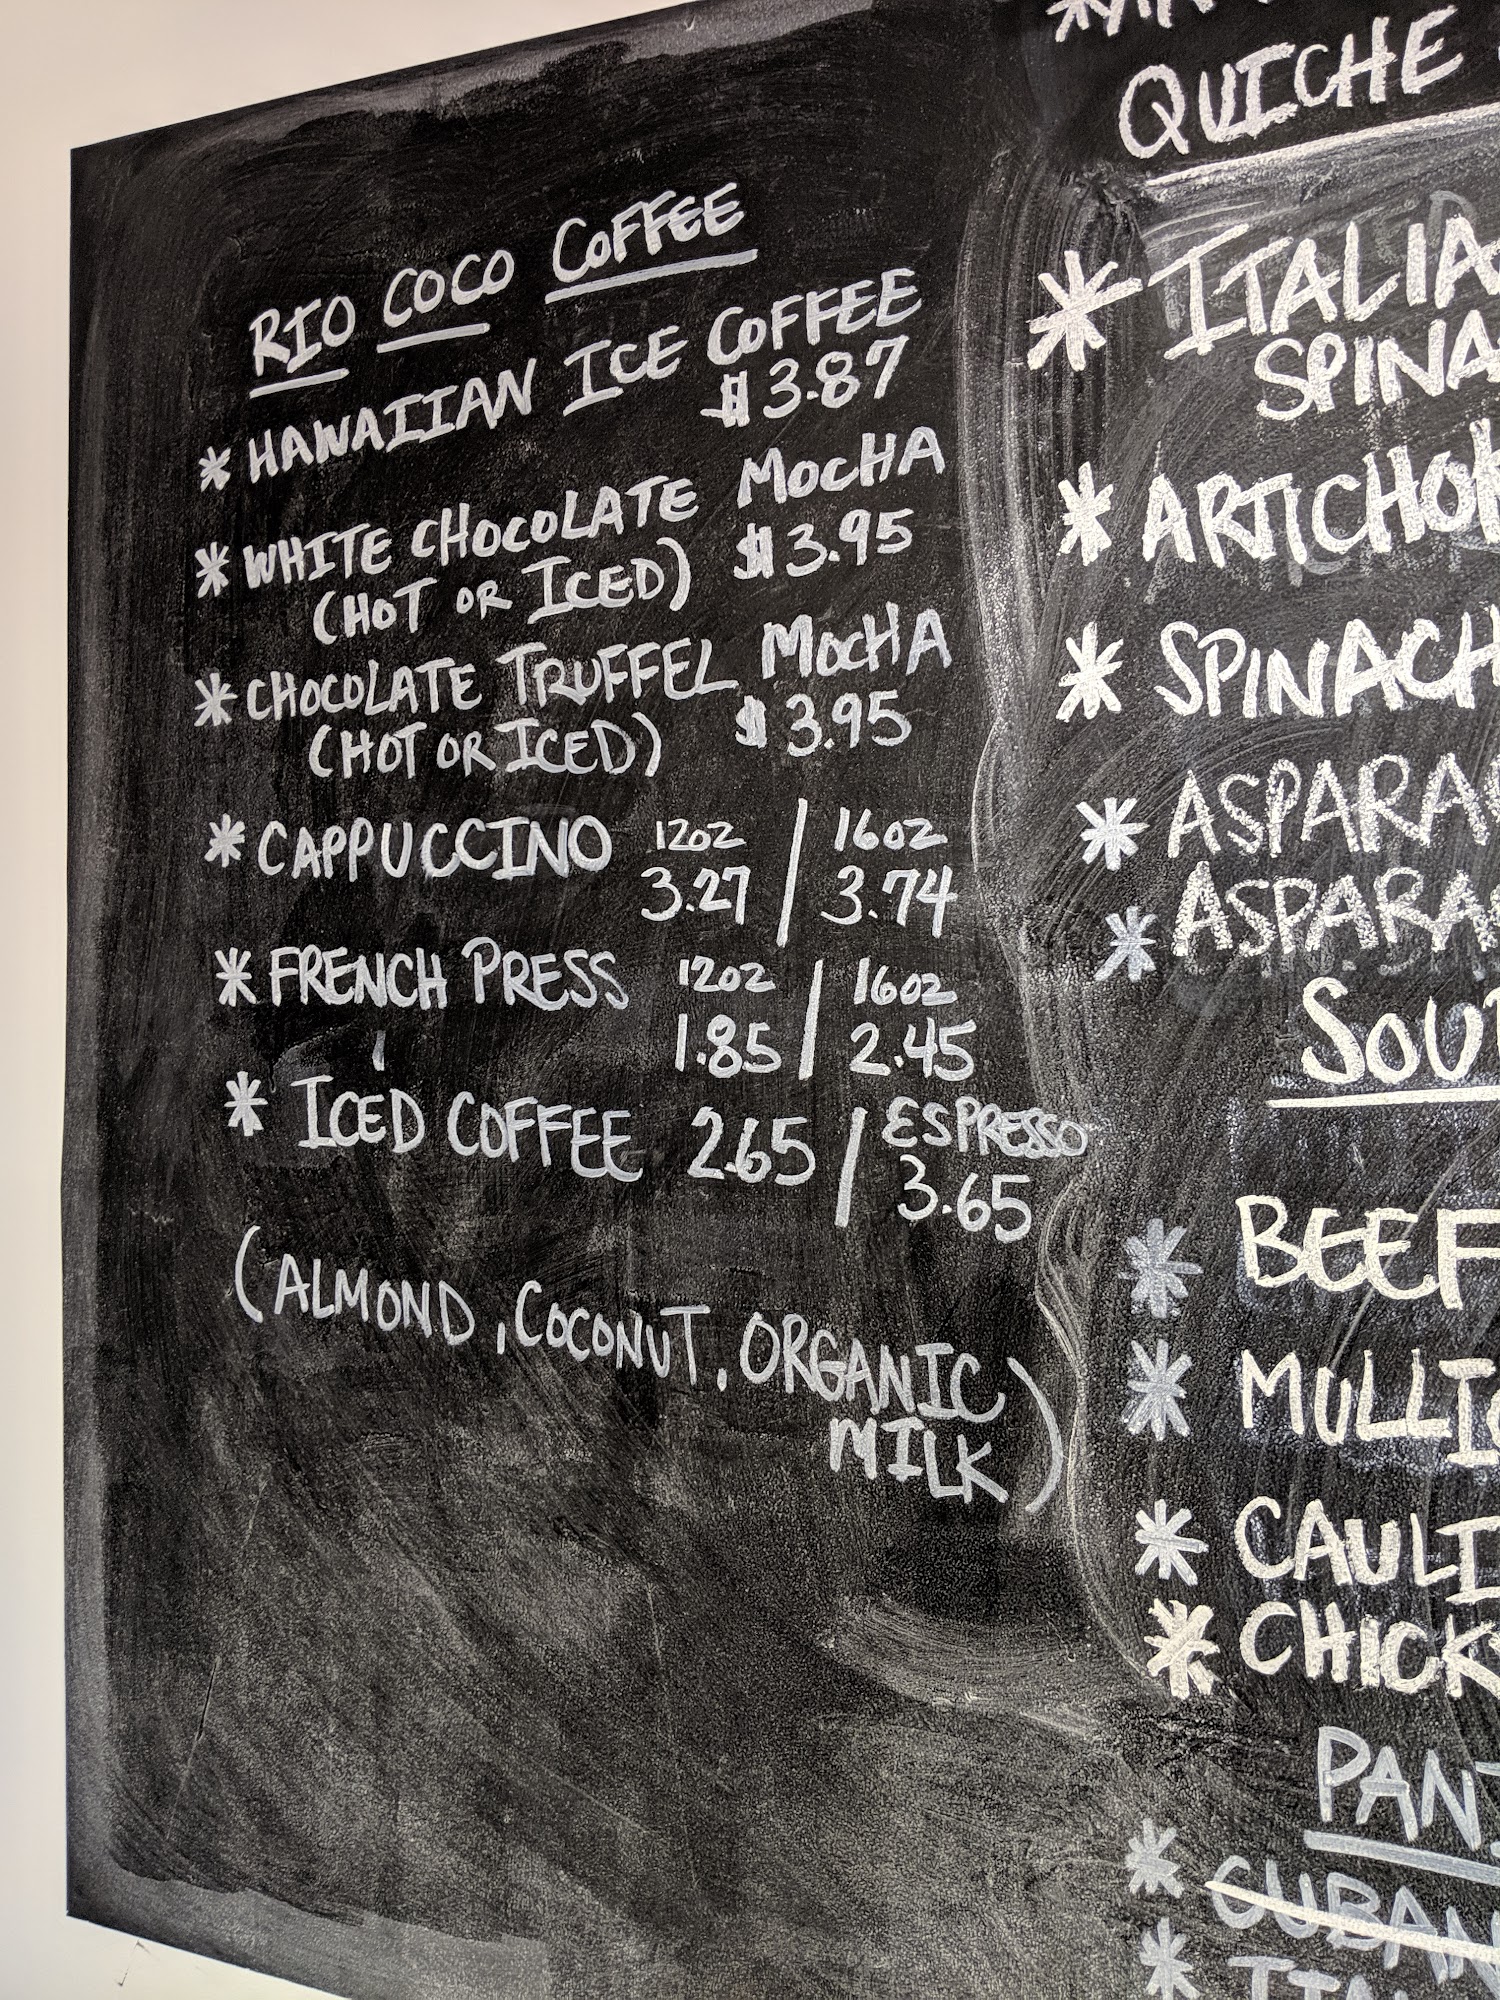 RIO COCO COFFEE
* HAWAIIAN ICE COFFEE
$3.87
* WHITE CHOCOLATE MOCHA
(HOT OR ICED) $3.95
* CHOCOLATE TRUFFEL MOCHA
(HOT OR ICED) $3.95
* CAPPUCCINO 12oz / 16oz
3.27 / 3.74
* FRENCH PRESS 12oz / 16oz
1.85 / 2.45
* ICED COFFEE 2.65 / ESPRESSO
3.65
(ALMOND, COCONUT, ORGANIC
MILK)
QUICHE
* ITALIA
SPINA
* ARTICHOK
* SPINACH
* ASPARAG
* ASPARA
SOU
* BEEF
* MULLIG
* CAULI
* CHICK
PAN
* CUBAN
* ITAL